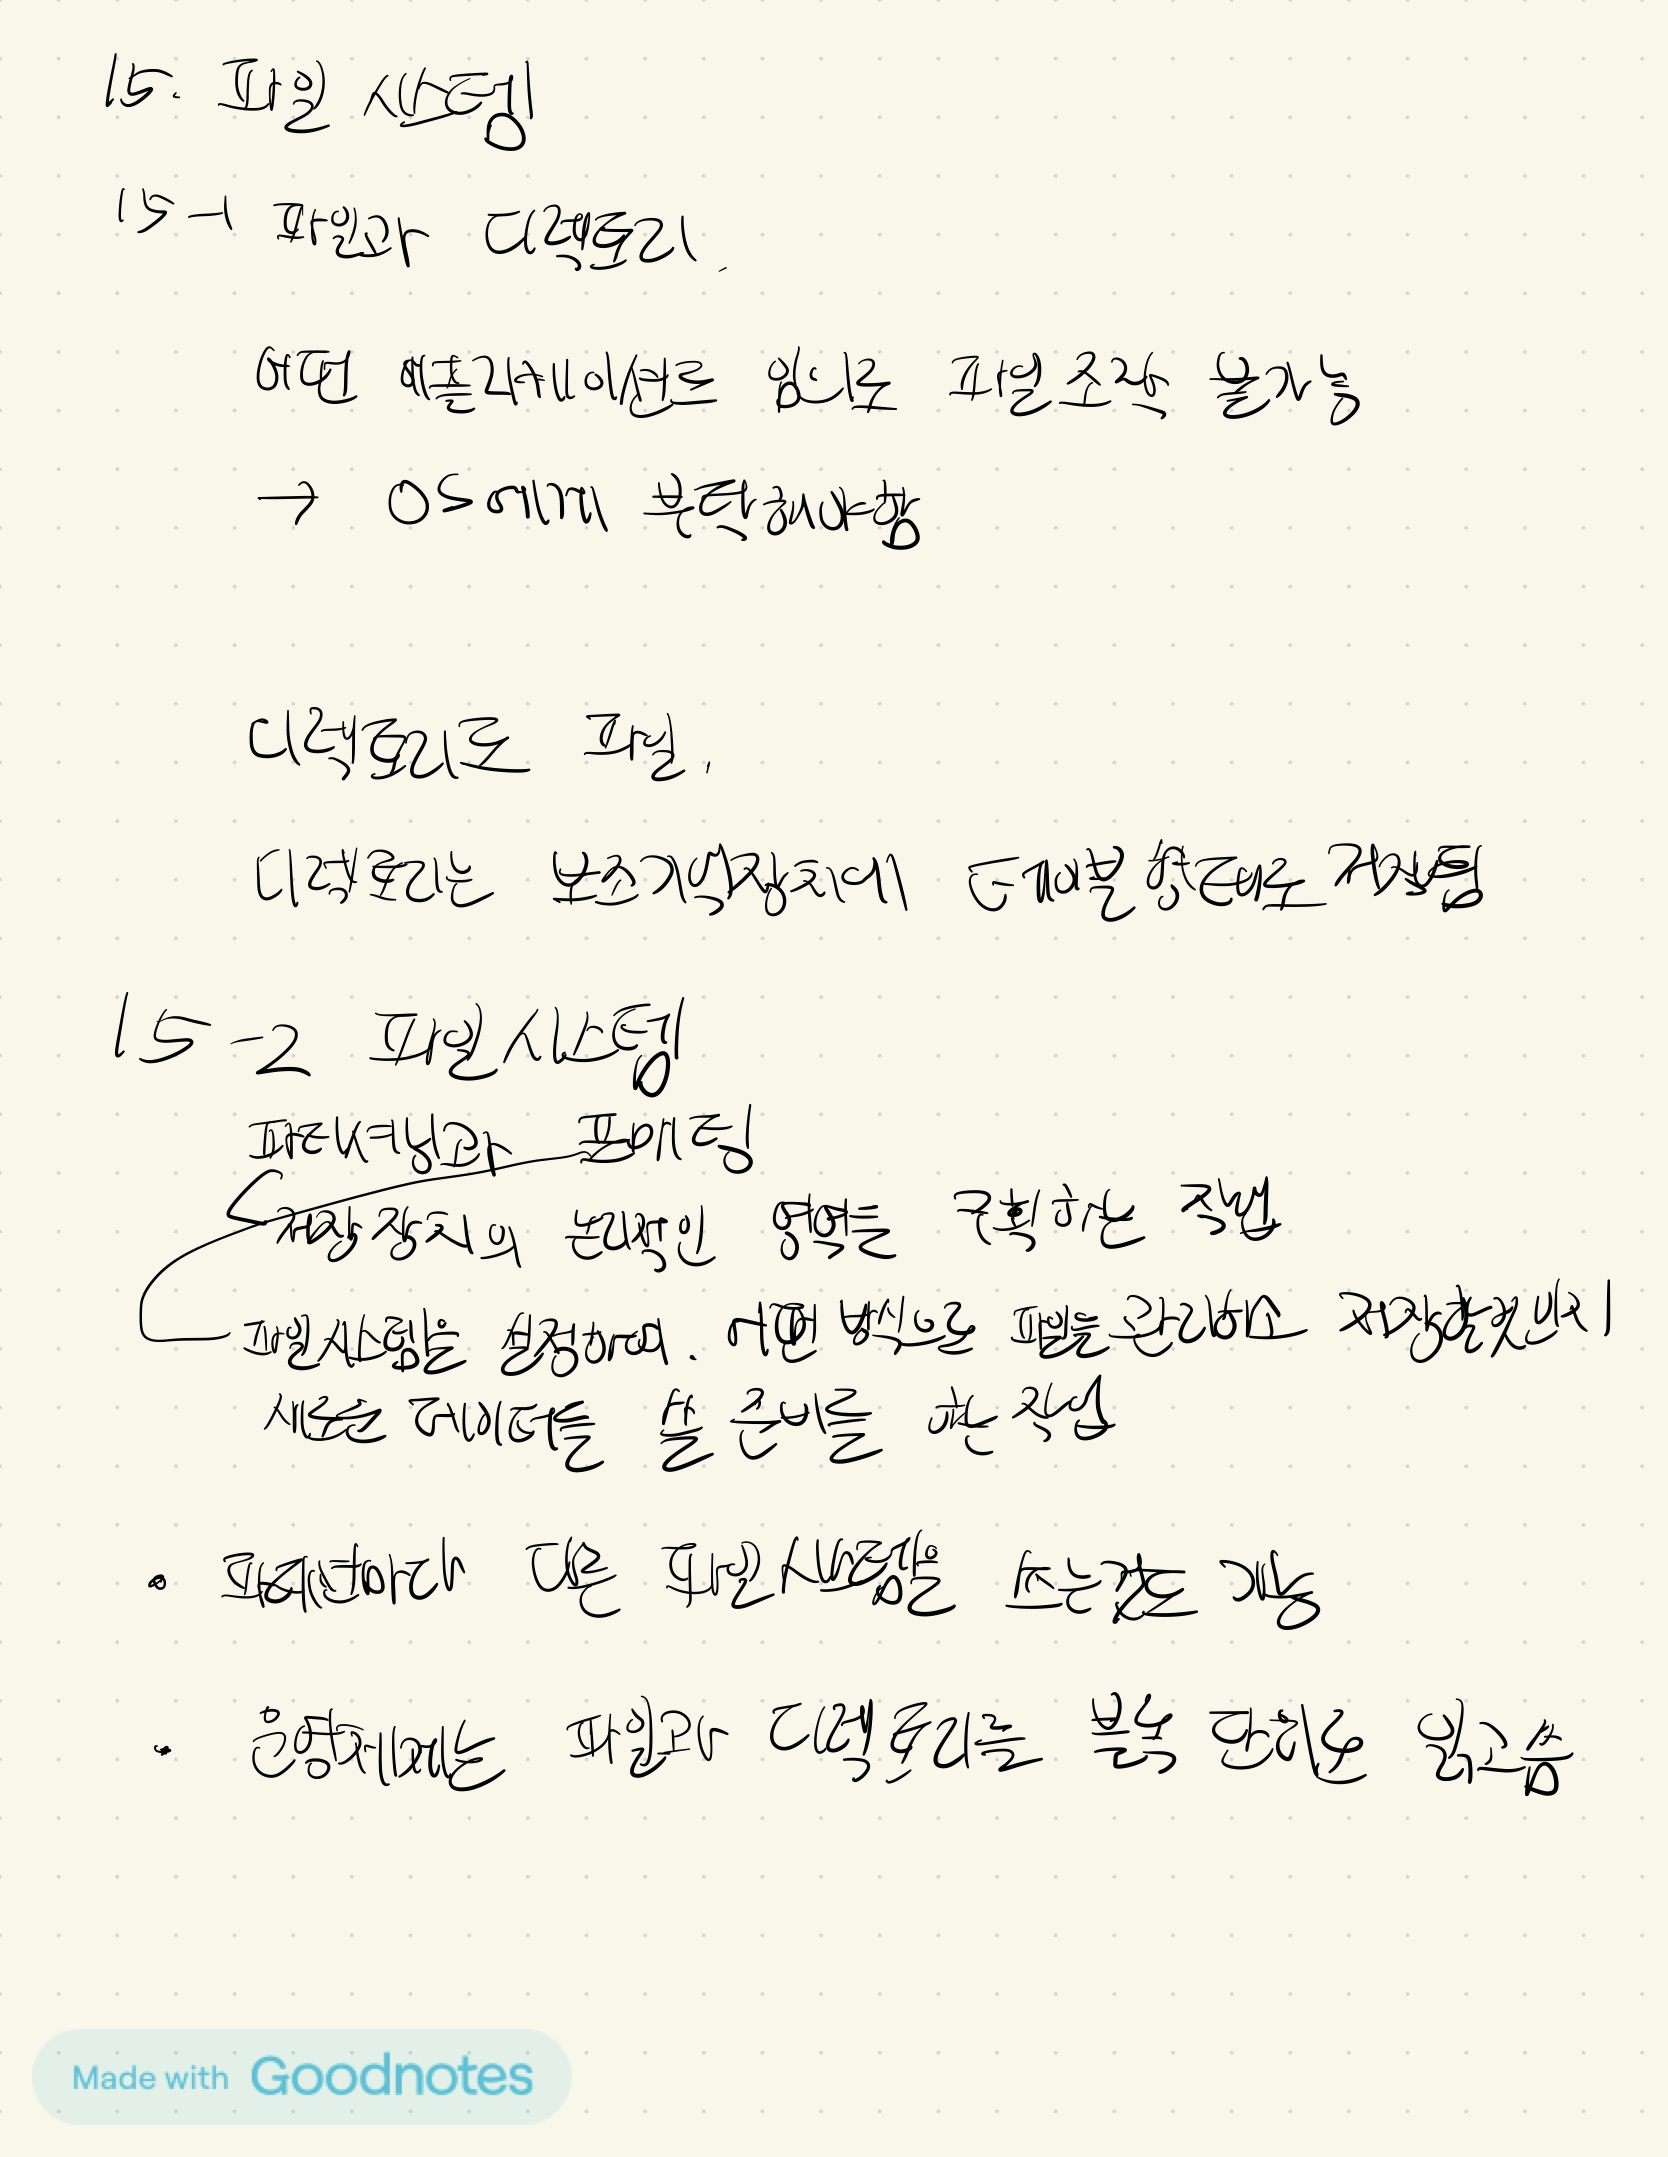 15. 파일 시스템
15-1 파일과 디렉토리.
어떤 애플리케이션도 임의로 파일조작 불가능
→ OS에게 부탁해야함
디렉토리도 파일.
디렉토리는 보조기억장치에 테이블 형태로 저장됨
15-2 파일시스템
파티셔닝과 포매팅
저장 장치의 논리적인 영역을 구획하는 작업
파일시스템을 설정하여. 어떤 방식으로 파일을 관리하고 저장할것인지
새로운 데이터를 쓸 준비를 하는 작업
• 파티션마다 다른 파일시스템을 쓰는것도 가능
• 운영체제는 파일과 디렉토리를 블록 단위로 읽고씀
Made with Goodnotes